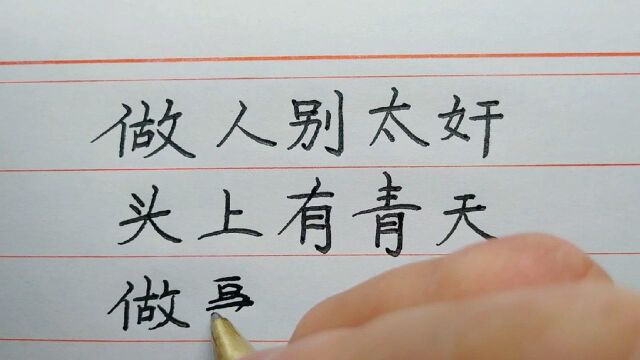 做人别太奸
头上有青天
做